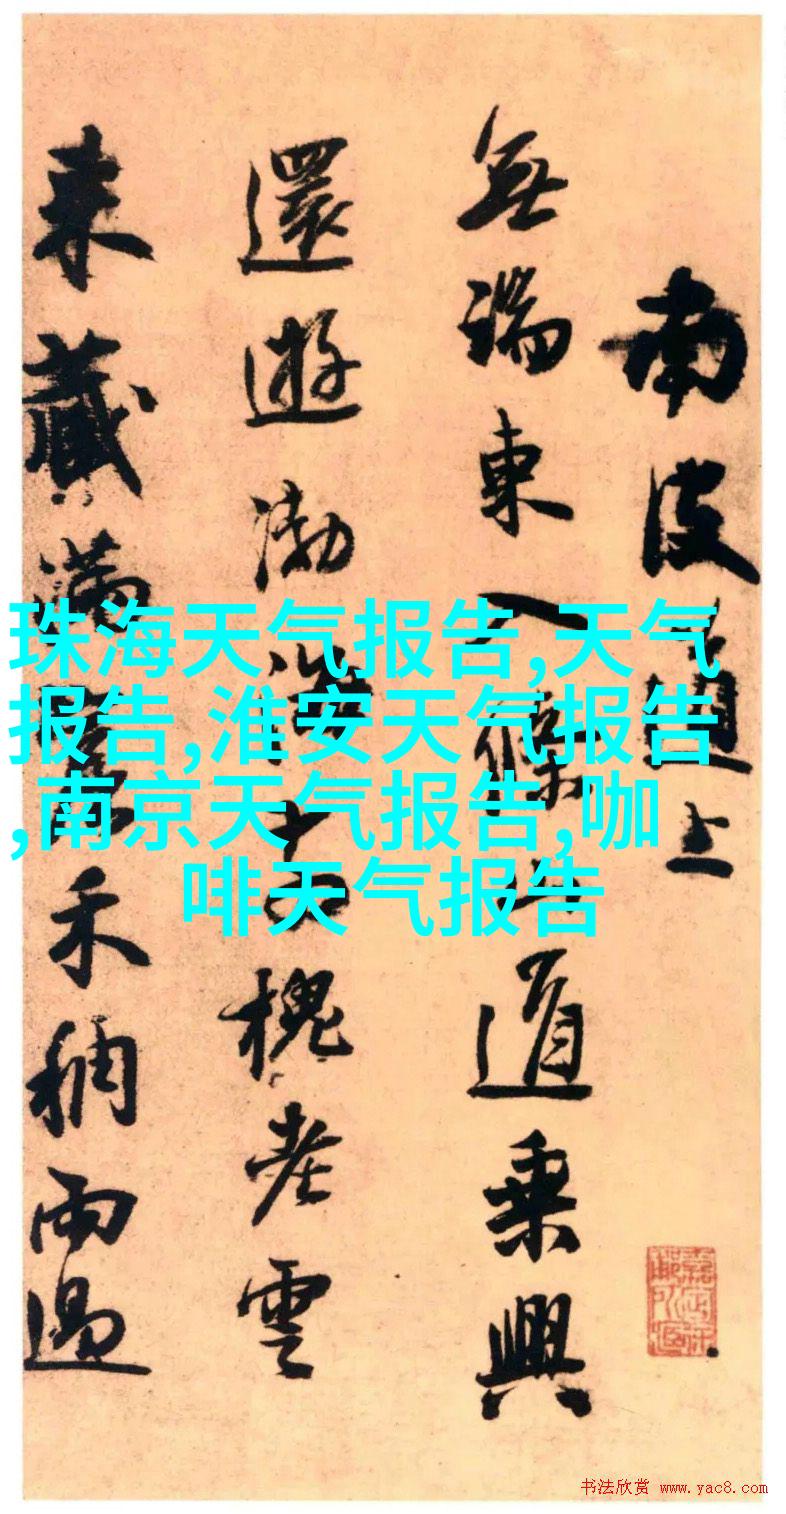 南皮道上
無端東入條山道乘興
還遊渤海
槐老雲
來藏滿
禾稠雨過
珠海天气报告,天气
报告,淮安天气报告
,南京天气报告,咖
啡天气报告
书法欣赏 www.yac8.com